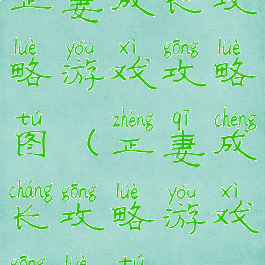 正妻成长攻
luè yóu xì gōng luè
略游戏攻略
tú zhèng qī chéng
图（正妻成
cháng gōng luè yóu xì
长攻略游戏
gōng luè tú